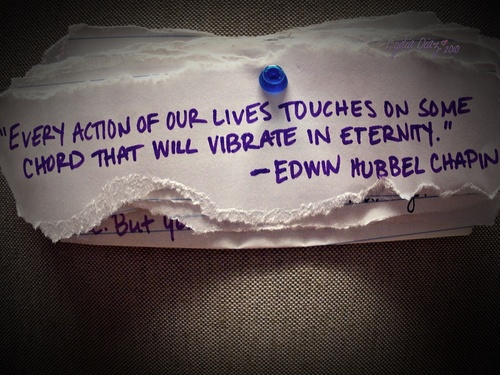 "EVERY ACTION OF OUR LIVES TOUCHES ON SOME
CHORD THAT WILL VIBRATE IN ETERNITY."
— EDWIN HUBBEL CHAPIN
. But